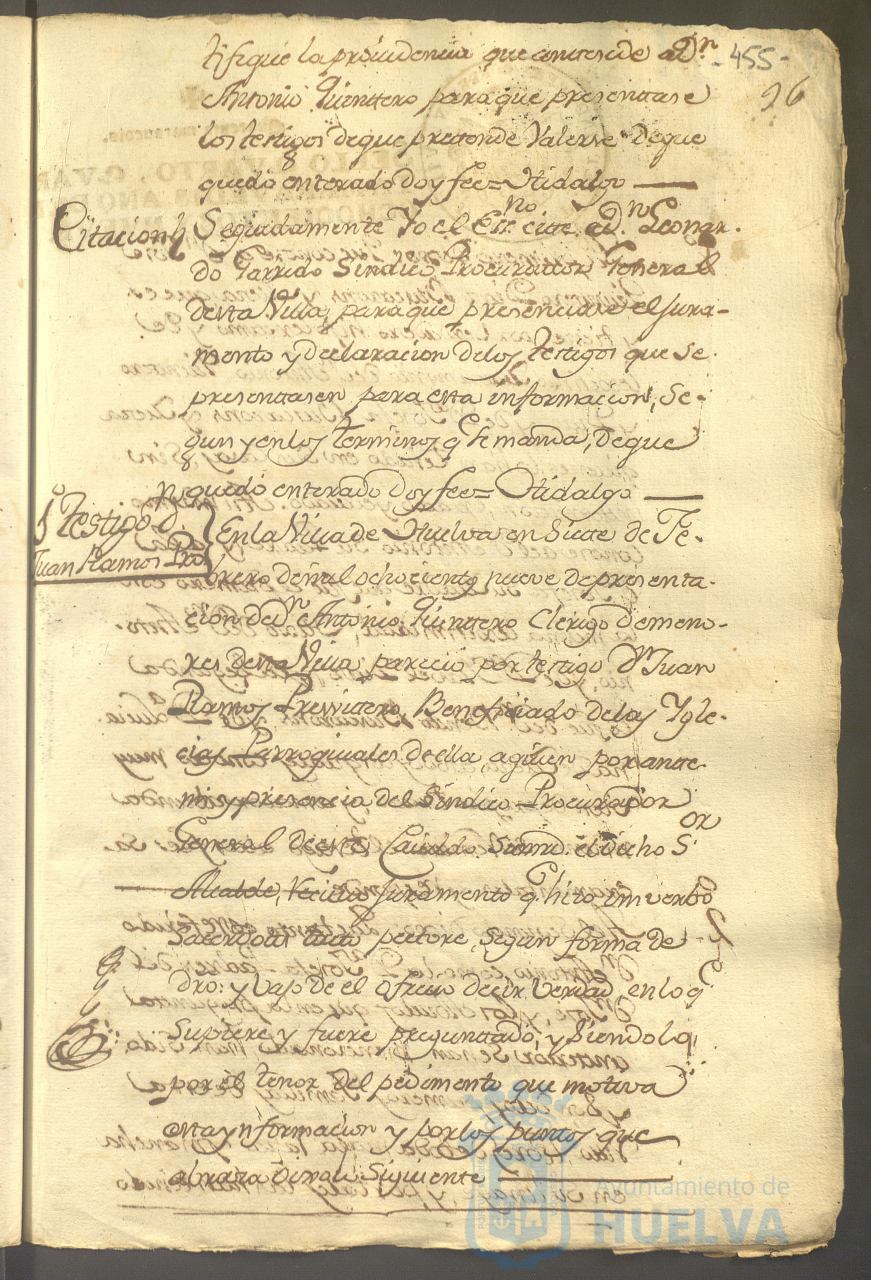 tifiqué la providencia que antesede a Dn. -455-
Antonio Quintero para que presentase 96
los testigos de que pretende Valerse De que
quedó enterado doy fee= Hidalgo —
Citacion Seguidamente Yo el Essno. cite a Dn. Leonar-
do Garrido Sindico Procurador General
desta Villa, para que presenciase el Jura-
mento y declaracion de los testigos que se
presentasen para esta informacion, se-
gun y en los terminos q. se manda, de que
quedó enterado doy fee= Hidalgo —
1º Testigo D. Juan Ramos Pro En la Villa de Huelva en Siete de Fe-
brero de mil ochocientos nueve de presenta-
cion de Dn. Antonio Quintero Clerigo de meno-
res desta Villa, parecio por testigo Dn. Juan
Ramos Presvitero Beneficiado de las Ygle-
cias Parroquiales de ella a quien por ante
mi y presencia del Sindico Procurador
General de este Cavildo, Su md. el dicho Sor.
Alcalde, Recivio juramento q. hizo in verbo
Sacerdotis tacto pectore, segun forma de
dro: y vajo de el ofrecio decir Verdad en lo q.
Supiere y fuere preguntado, y Siendolo
por el tenor del pedimento que motiva
esta ynformacion y por los puntos que
abraza Dijo lo Siguiente —
Ayuntamiento de
HUELVA